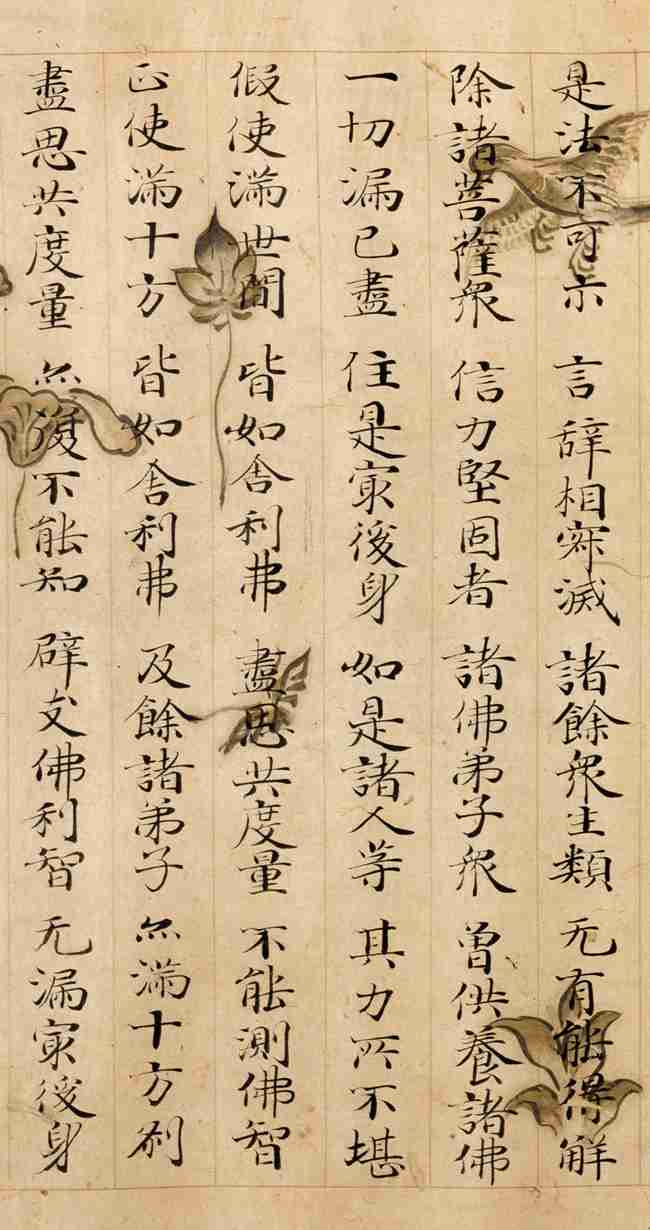 是法不可示 言辞相寂滅 諸餘衆生類 无有能得解
除諸菩薩衆 信力堅固者 諸佛弟子衆 曾供養諸佛
一切漏已盡 住是寂後身 如是諸人等 其力所不堪
假使滿世間 皆如舍利弗 盡思共度量 不能測佛智
正使滿十方 皆如舍利弗 及餘諸弟子 亦滿十方刹
盡思共度量 亦復不能知 辟支佛利智 无漏寂後身